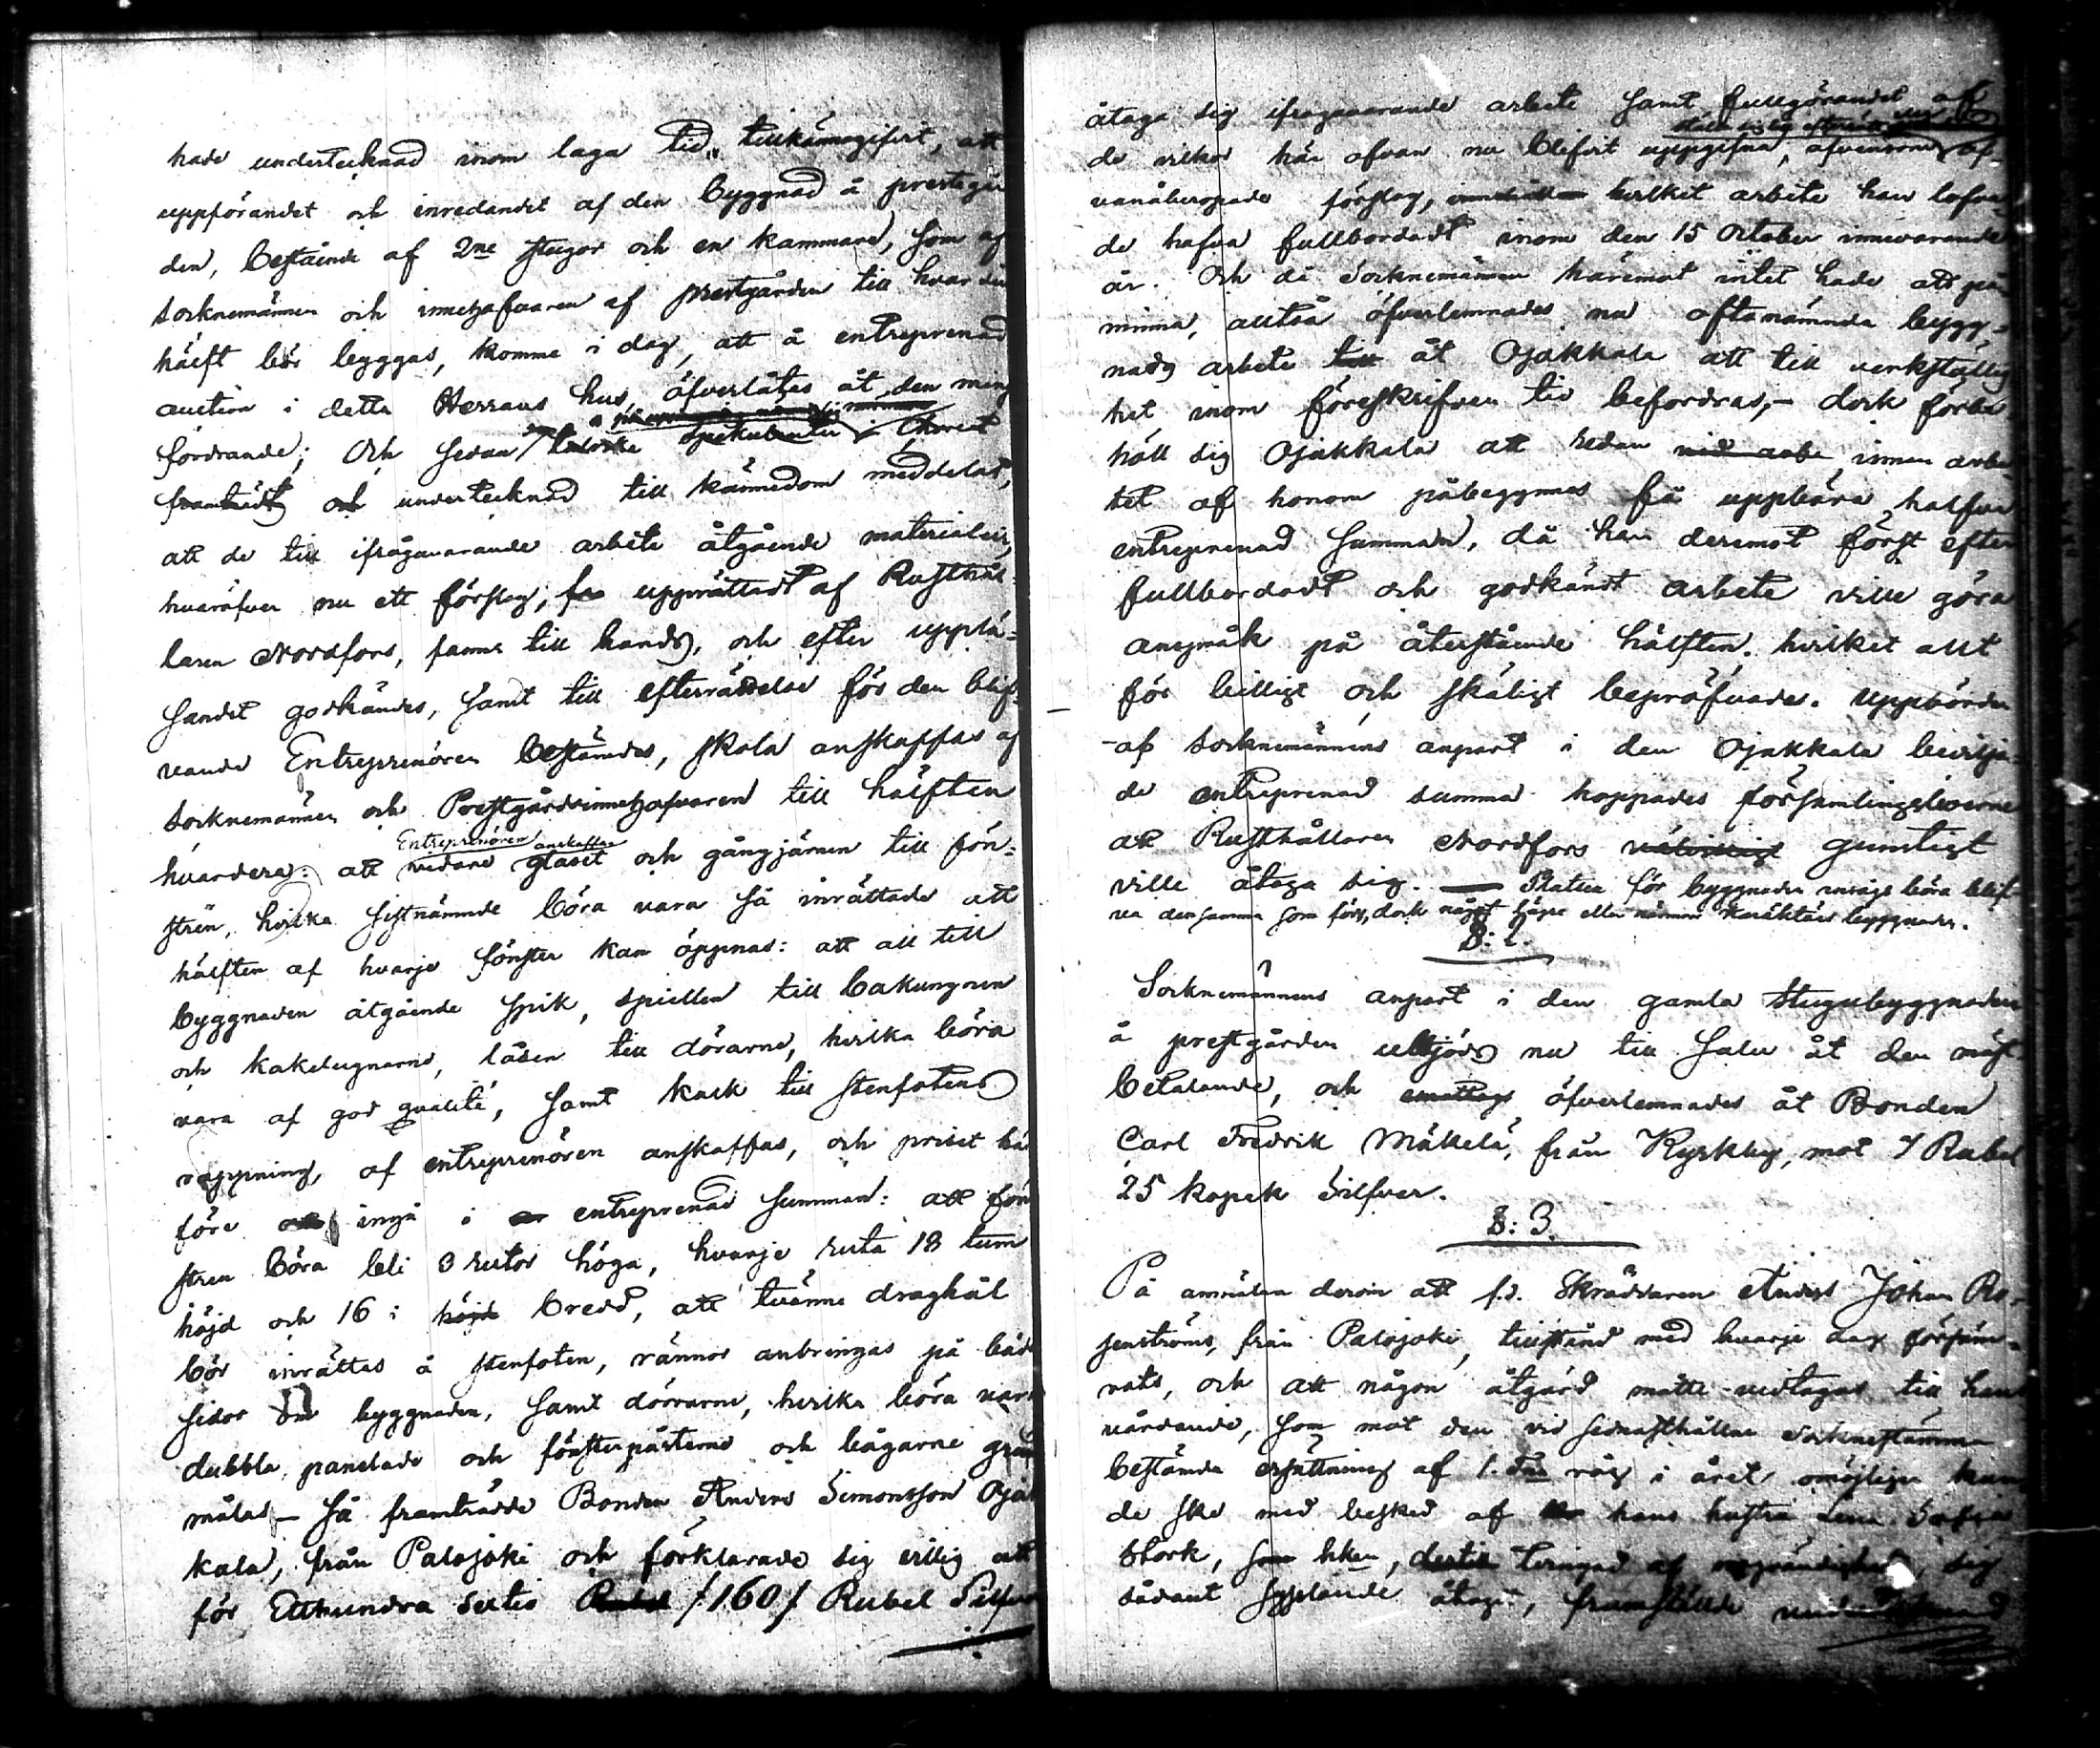 hade undertecknad inom laga tid tillkännagifvit, att
uppförandet och inredandet af den byggnad å prestgår
den, bestående af 2ne stugor och en kammare, som af
socknemännen och innehafvaren af prestgården till hvar sin
hälft bör byggas, komme i dag, att å entreprenad
auction i detta Herrans hus öfverlåtas åt den minst
fordrande; Och sedan spekulanter i Choret
framträdt och undertecknad till kännedom meddelat,
att de till ifrågavarande arbete åtgående materialier,
hvaröfver nu ett förslag, upprättadt af Rusthål-
laren Nordfors, fanns till hands, och efter upplä-
sandet godkändes, samt till efterrättelse för den blif-
vande Entreprenören bestämdes, skola anskaffas af
Socknemännen och Prestgårdsinnehafvaren till hälften
hvardera: att
Entreprenören anskaffar
vidare glaset och gångjärnen till fön-
stren, hvilka sistnämnde böra vara så inrättade att
hälften af hvarje fönster kan öppnas: att all till
byggnaden åtgående spik, spiellen till bakungnen
och kakelugnarne, låsen till dörarne, hvilka böra
vara af god qvalité, samt kalk till stenfotens
rappning, af entreprenören anskaffas, och priset här
före ingå i entreprenad summan: att fön
stren böra bli 3 rutor höga, hvarje ruta 18 tum
höjd och 16 i höjd bredd, att tvänne draghål
bör inrättas å stenfoten, rännor anbringas på båda
sidor om byggnaden, samt dörrarne, hvilka böra vara
dubbla, panelade och fönsterpösterne och bågarne
målas – Så framträdde Bonden Anders Simonsson Ojak
kala, från Palojoki och förklarade sig villig att
för Etthundra Sextio Rubel /160/ Rubel Silfver
åtaga sig ifrågavarande arbete samt fullgörandet af
de vilkor här ofvan nu blifvit uppgifna, äfvensom af
vanåberopade förslag, hvilket arbete han lofva-
de hafva fullbordadt inom den 15 October innevarande
år. Och då Socknemännen häremot intet hade att på-
minna, alltså öfverlemnades nu oftanämnda bygg-
nads arbete till åt Ojakkala att till verkställig
het inom föreskrifven tid befordras, – dock förbe
höll sig Ojakkala att redan innan arbe
tet af honom påbegynnes få uppbära halfva
entreprenad summan, då han deremot först efter
fullbordadt och godkändt arbete ville göra
anspråk på återstående hälften. hvilket allt
för billigt och skäligt bepröfvades. Uppbörden
af Socknemännens anpart i den Ojakkala bevilja-
de entreprenad summa hoppades församlingsboerne
att Rusthållaren Nordfors välvilligt gunstigt
ville åtaga sig. Platsen för byggnaden borde blif
va densamma som förr, dock något eller närmare byggnaden.
§: 2.
Socknemännens anpart i den gamla stugubyggnaden
å prestgården utbjöds nu till salu åt den mäst
betalande, och öfverlemnades åt Bonden
Carl Fredrik Mäkelä, från Kyrkby, mot 7 Rubel
25 kopek Silfver.
§: 3.
På anmälan derom att f.d. Skräddaren Anders Johan Ro-
senströms, från Palojoki, tillstånd med hvarje dag försäm-
rats, och att någon åtgärd måtte vidtagas till hans
vårdande, som mot den vid sednasthållne Socknestämma
bestämda ersättning af 1. Tna råg i året omöjligen kun
de ske med besked af hans hustru Lena Sofia
Stork, som hken, dertill tvingad af, sig
sådant åtagit, framställde undertecknad